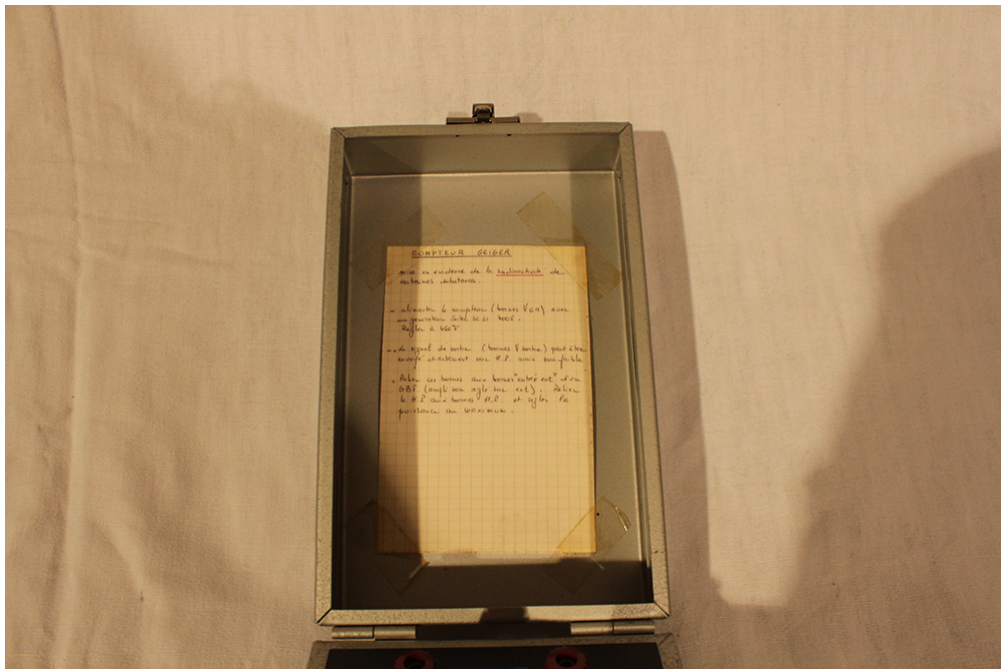 COMPTEUR GEIGER
mise en évidence de la radioactivité de
certaines substances.
- alimenter le compteur (bornes V GM) avec
un générateur
Régler à 450V
- Le signal de sortie (bornes V sortie) peut être
envoyé directement sur H.P. mais
- Relier ces bornes aux bornes "entrée ext" d'un
GBF (ampli son réglé sur ext). Relier
le H.P. aux bornes H.P. et régler la
puissance au maximum.